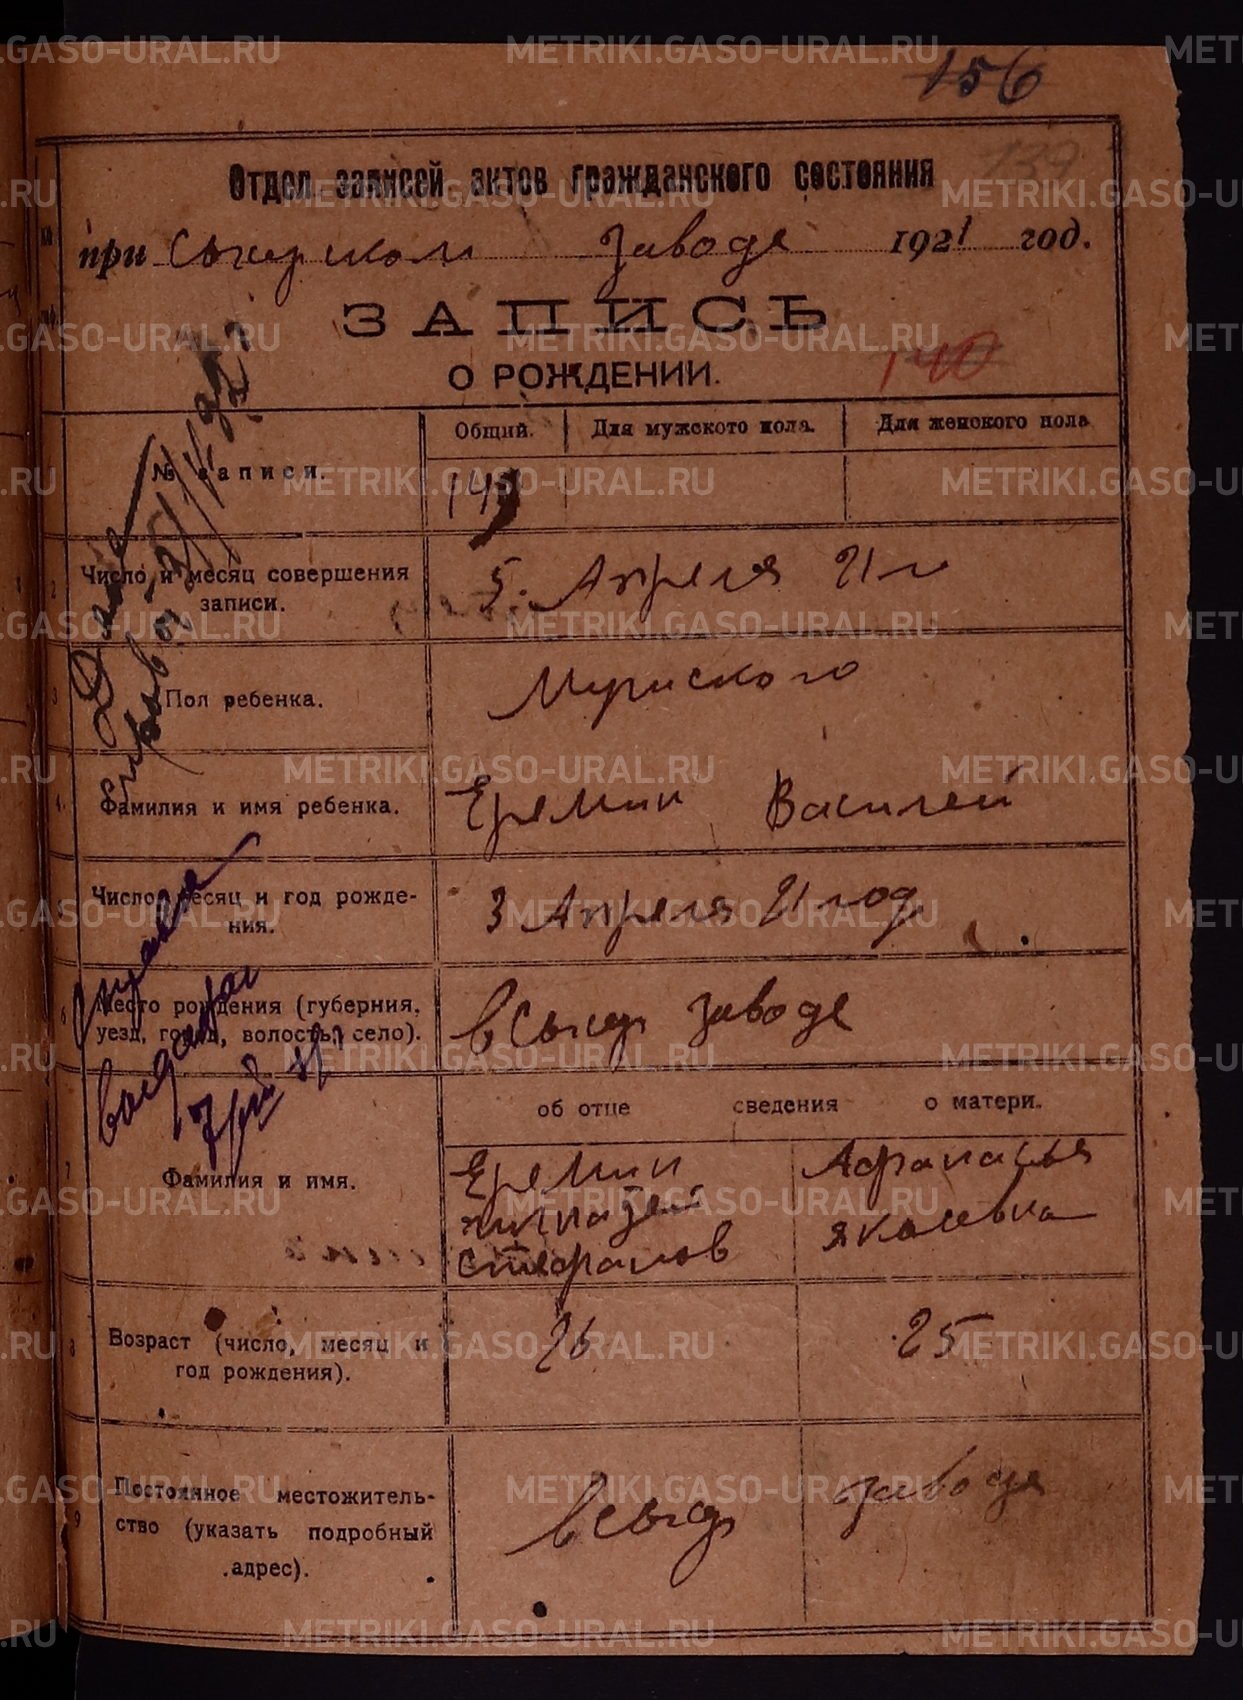 156
139
Отдел записей актов гражданского состояния
при Сысерском заводе 1921 год.
ЗАПИСЬ
О РОЖДЕНИИ.
140
Общий. Для мужского пола. Для женского пола
№ записи.
Число и месяц совершения записи.
5. Апреля 21 г
Пол ребенка.
Мужского
Фамилия и имя ребенка.
Еремин Василей
Число месяц и год рожде-
ния.
3 Апреля 21 год
Место рождения (губерния,
уезд, город, волость, село).
в Сысер заводе
об отце сведения о матери.
Фамилия и имя.
Еремин
Стефанов
Афанасья
Яковлевна
Возраст (число, месяц и
год рождения).
26
25
Постоянное местожитель-
ство (указать подробный
адрес).
в Сысер заводе
справка
выдана
METRIKI.GASO-URAL.RU